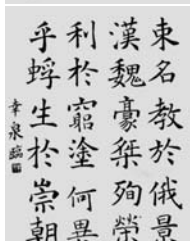 束名教於俄景
漢魏豪桀殉榮
利於窮塗何異
乎蜉生於崇朝
幸泉臨